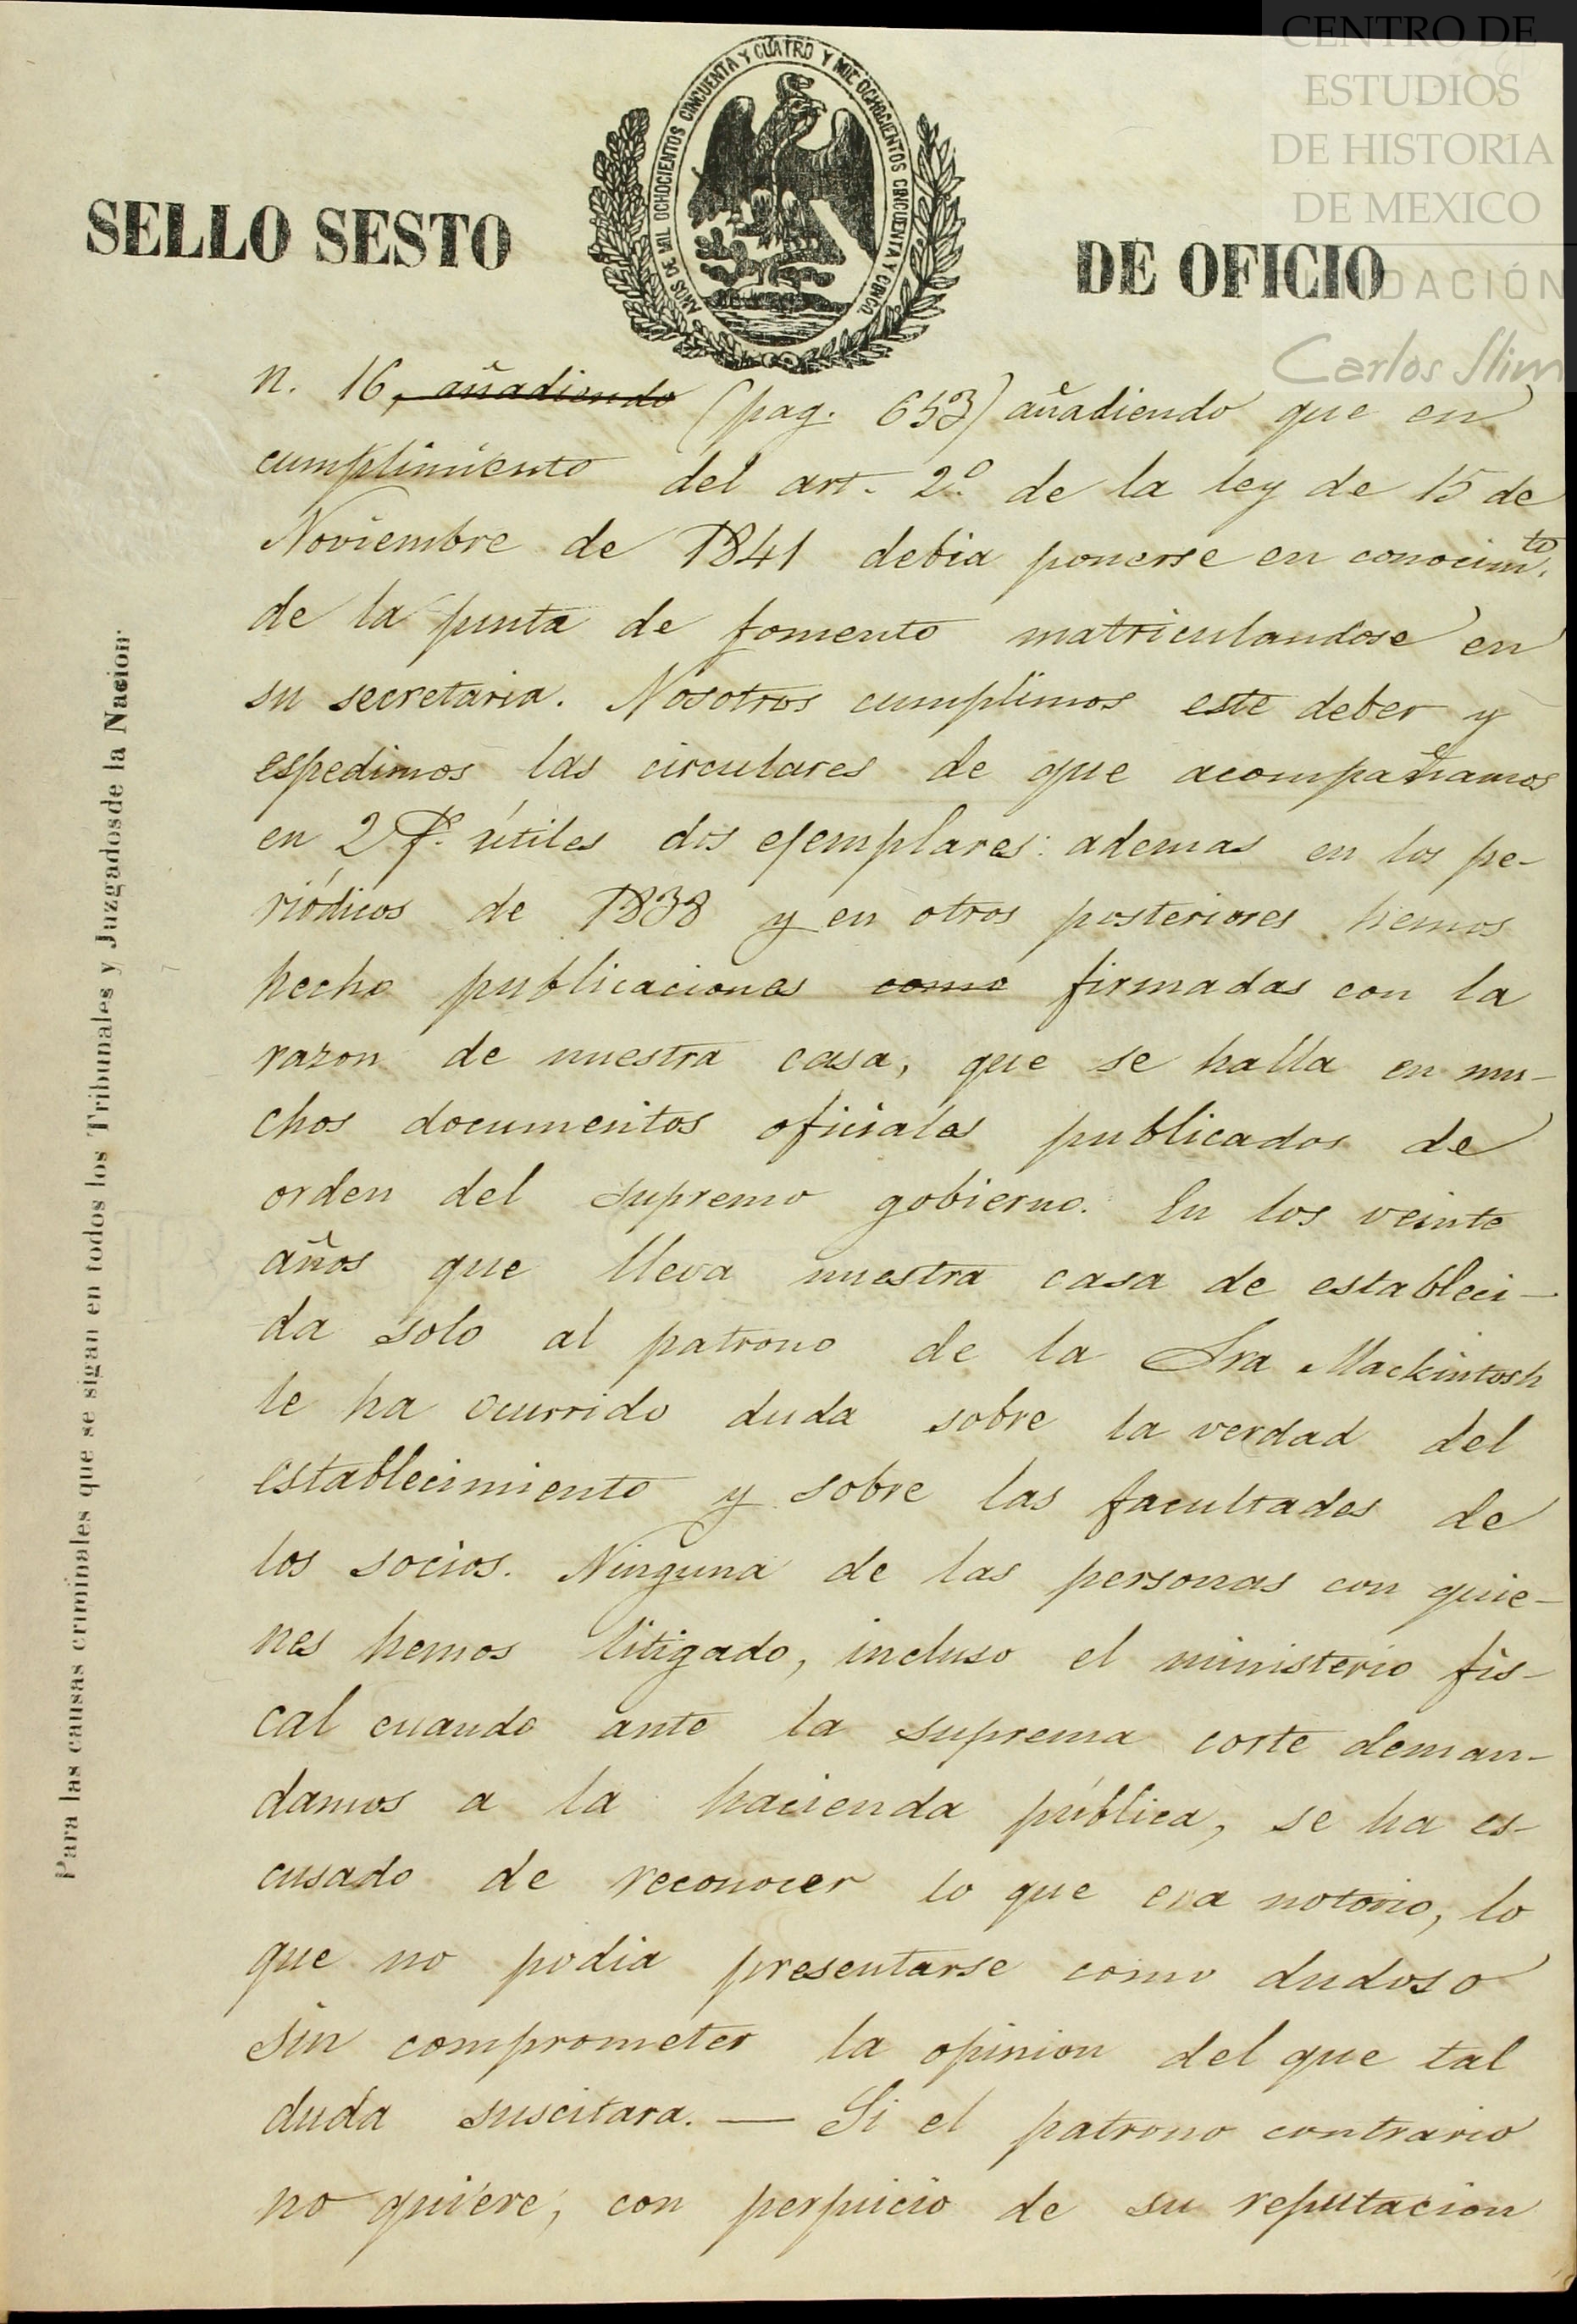 CENTRO DE
ESTUDIOS
DE HISTORIA
DE MEXICO
FUNDACIÓN
Carlos Slim
SELLO SESTO
AÑOS DE MIL OCHOCIENTOS CINCUENTA Y CUATRO Y MIL OCHOCIENTOS CINCUENTA Y CINCO.
DE OFICIO
Para las causas criminales que se sigan en todos los Tribunales y Juzgados de la Nacion
n. 16, añadiendo (pag. 653) añadiendo que en
cumplimiento del art. 2º de la ley de 15 de
Noviembre de 1841 debia ponerse en conocimto.
de la junta de fomento matriculandose en
su secretaria. Nosotros cumplimos este deber y
espedimos las circulares de que acompañamos
en 2 f. útiles dos ejemplares: ademas en los pe-
riódicos de 1838 y en otros posteriores hemos
hecho publicaciones como firmadas con la
razon de nuestra casa, que se halla en mu-
chos documentos oficiales publicados de
orden del supremo gobierno. En los veinte
años que lleva nuestra casa de estableci-
da solo al patrono de la Sra Mackintosh
le ha ocurrido duda sobre la verdad del
establecimiento y sobre las facultades de
los socios. Ninguna de las personas con quie-
nes hemos litigado, incluso el ministerio fis-
cal cuando ante la suprema corte deman-
damos a la hacienda pública, se ha es-
cusado de reconocer lo que era notorio, lo
que no podia presentarse como dudoso
sin comprometer la opinion del que tal
duda suscitara. — Si el patrono contrario
no quiere, con perjuicio de su reputacion